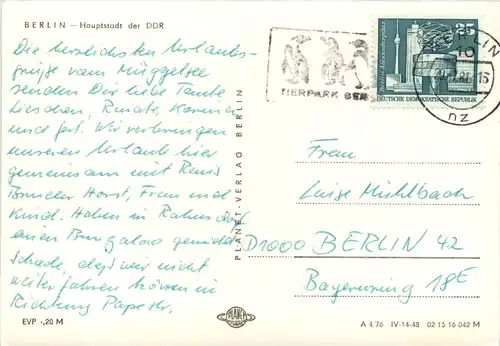 BERLIN – Hauptstadt der DDR
Die herzlichsten Urlaubs-
grüße vom Müggelsee
senden Dir liebe Tante
Lieschen, Renate, Karin
und Gert. Wir verbringen
unseren Urlaub hier
gemeinsam mit Renis
Bruder Horst, Frau und
Kind. Haben in Rahnsdorf
einen Bungalow gemietet
Schade, daß wir nicht
weiter fahren können in
Richtung Papestr.
EVP -,20 M
PLANET-VERLAG BERLIN
PLANET
TIERPARK BER
BERLIN
10
nz
25
Berlin, Alexanderplatz
DEUTSCHE DEMOKRATISCHE REPUBLIK
Frau
Luise Mühlbach
D1000 BERLIN 42
Bayernring 18E
A 4/76 IV-14-48 02 15 16 042 M